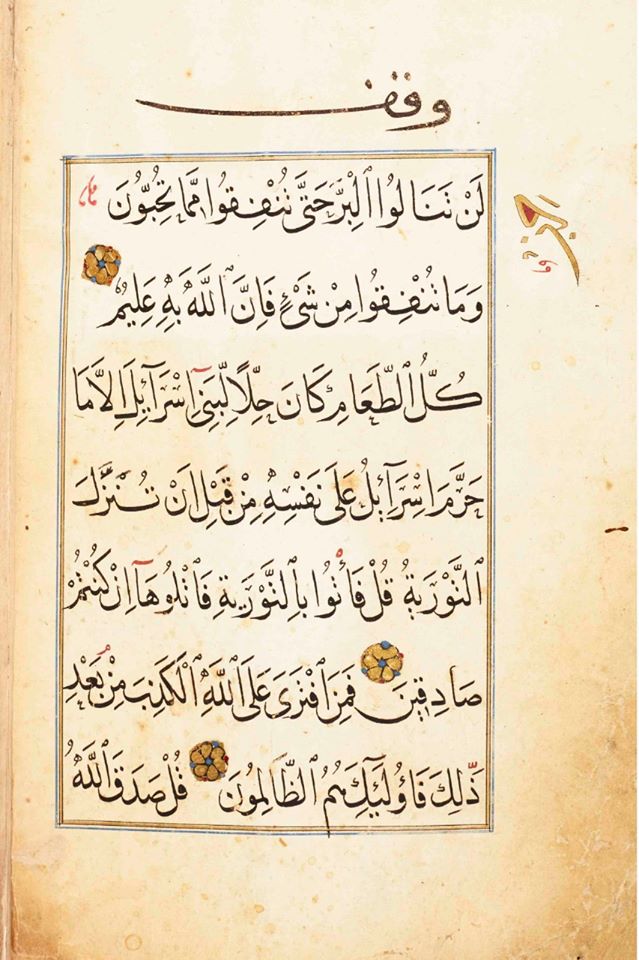 وقف
لَنْ تَنَالُوا الْبِرَّ حَتَّى تُنْفِقُوا مِمَّا تُحِبُّونَ
الجزء
وَمَا تُنْفِقُوا مِنْ شَيْءٍ فَاِنَّ اللَّهَ بِهِ عَلِيمٌ
كُلُّ الطَّعَامِ كَانَ حِلًّا لِبَنِي اِسْرَآئِلَ اِلَّا مَا
حَرَّمَ اِسْرَآئِلُ عَلَى نَفْسِهِ مِنْ قَبْلِ اَنْ تُنَزَّلَ
التَّوْرَيةُ قُلْ فَأْتُوا بِالتَّوْرَيةِ فَاتْلُوهَآ اِنْ كُنْتُمْ
صَادِقِينَ فَمَنِ افْتَرَى عَلَى اللَّهِ الْكَذِبَ مِنْ بَعْدِ
ذَلِكَ فَاُولَئِكَ هُمُ الظَّالِمُونَ قُلْ صَدَقَ اللَّهُ